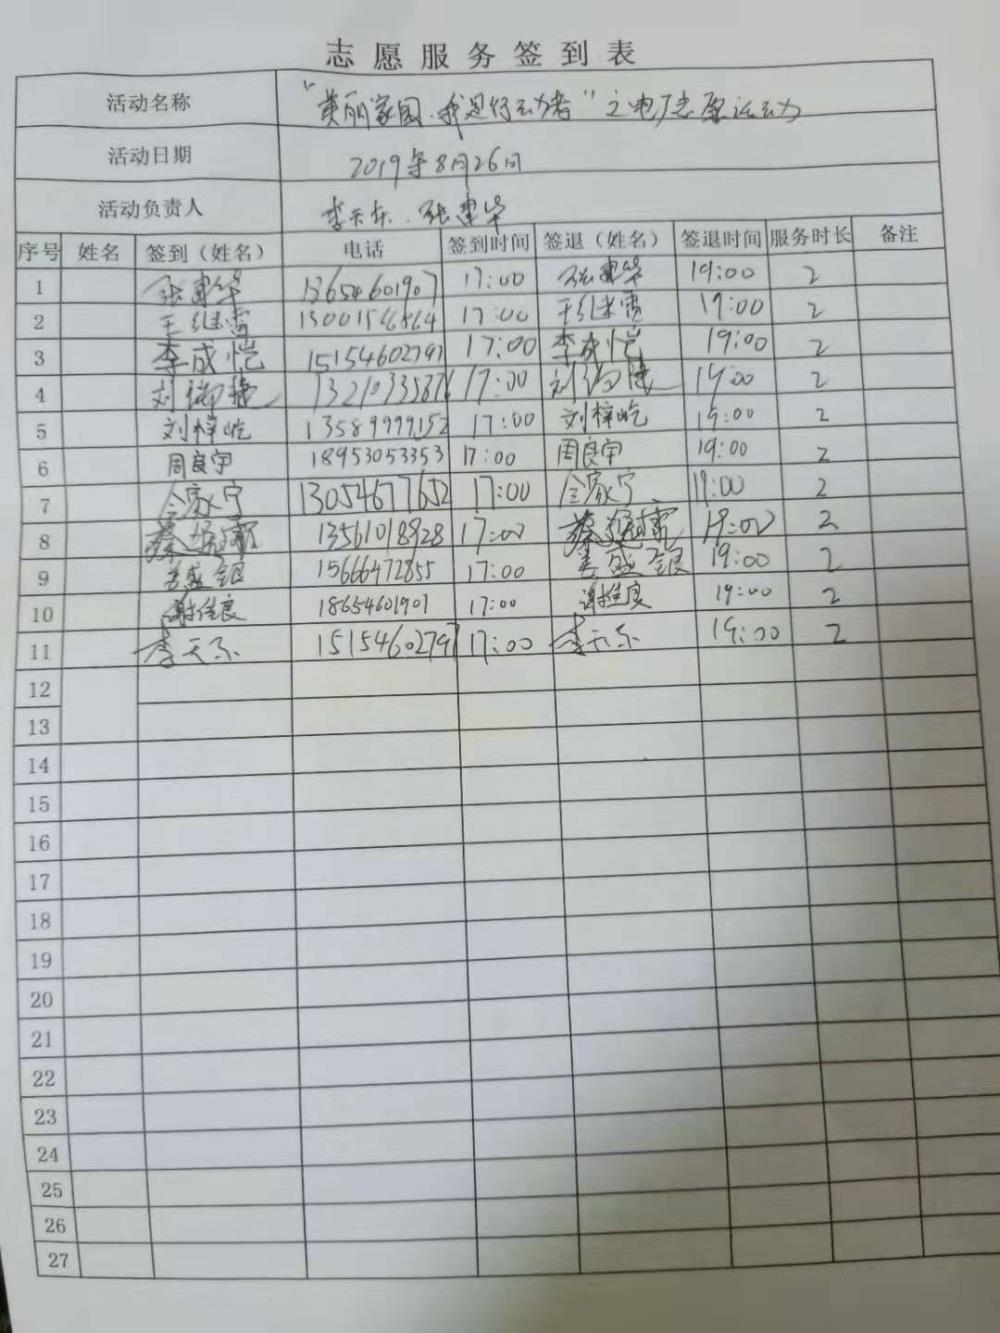 志愿服务签到表
活动名称 "美丽家园·我是行动者"之电厂志愿活动
活动日期 2019年8月26日
活动负责人 李天东、张建华
序号 姓名 签到（姓名） 电话 签到时间 签退（姓名） 签退时间 服务时长 备注
1 张建华 13654601907 17:00 张建华 19:00 2
2 17:00 19:00 2
3 李成恺 15154602797 17:00 李成恺 19:00 2
4 17:00 19:00 2
5 刘梓屹 13589999152 17:00 刘梓屹 19:00 2
6 周良宇 18953053353 17:00 周良宇 19:00 2
7 仝家宁 13054677652 17:00 仝家宁 19:00 2
8 13561018928 17:00 19:00 2
9 姜盛银 15666472855 17:00 姜盛银 19:00 2
10 谢佳良 18654601907 17:00 谢佳良 19:00 2
11 李天东 15154602797 17:00 李天东 19:00 2
12
13
14
15
16
17
18
19
20
21
22
23
24
25
26
27